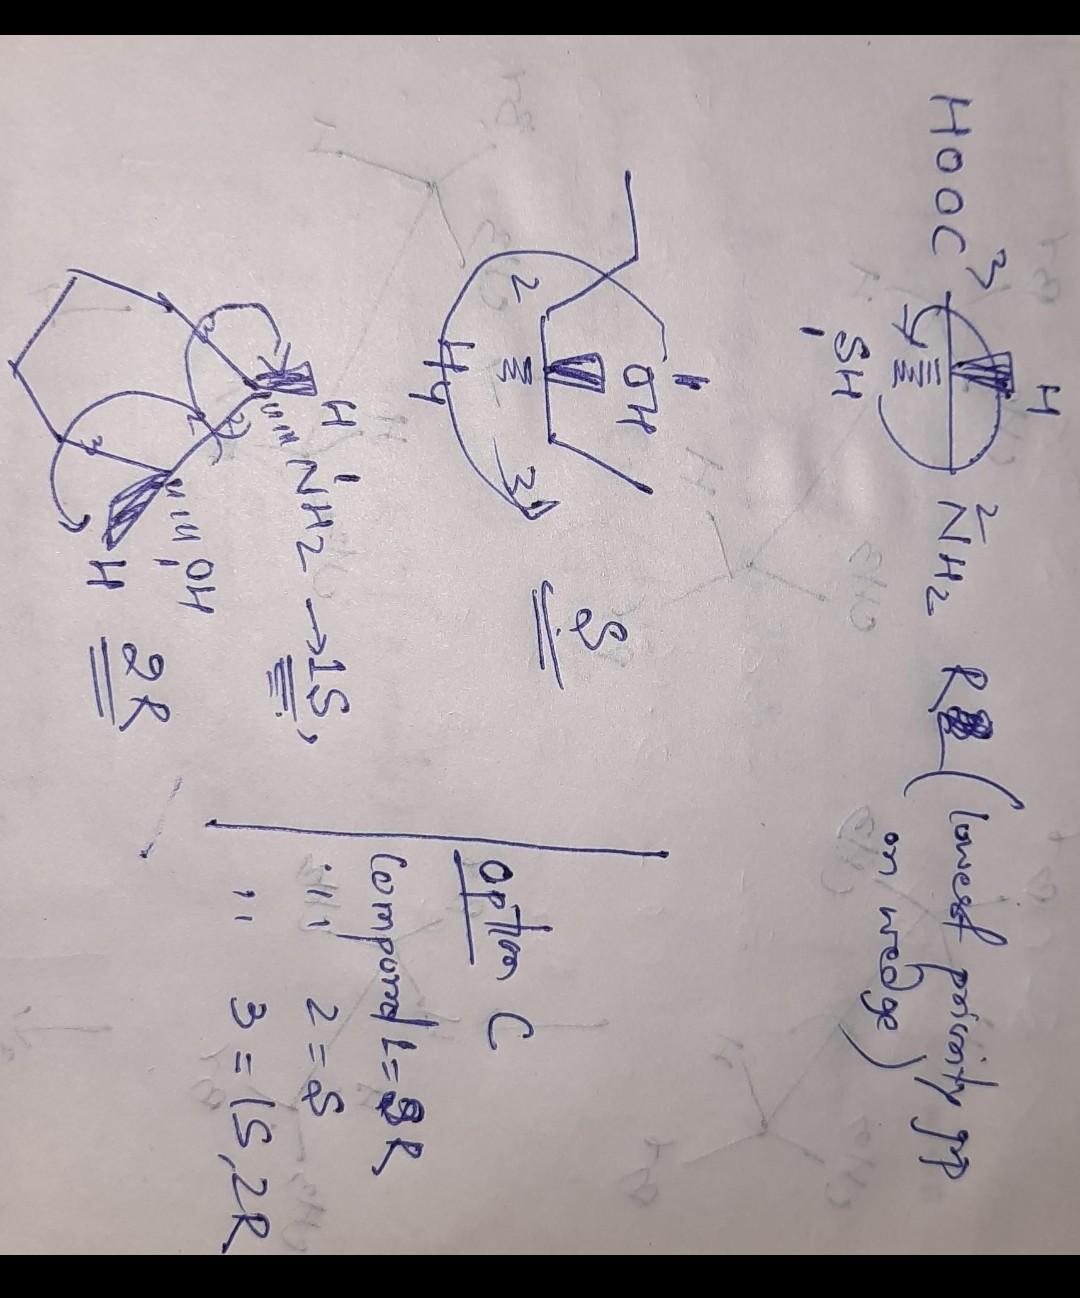 HOOC 3
H
SH
1
2 NH2
R (lowest priority gp
on wedge)
2
OH
1
H
4
3
S
H
1
NH2 → 1S,
2
3
OH
H
2R
Option C
Compound 1 = R
" 2 = S
" 3 = 1S, 2R